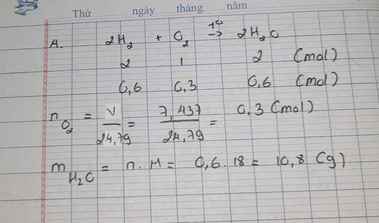 Thứ ngày tháng năm
A. 2H₂ + O₂ →t° 2H₂O
2 1 2 (mol)
0,6 0,3 0,6 (mol)
n O₂ = V/24,79 = 7,437/24,79 = 0,3 (mol)
m H₂O = n . M = 0,6 . 18 = 10,8 (g)